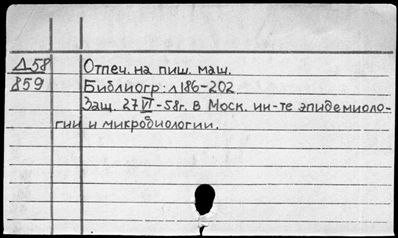 Д58 Отпеч. на пиш. маш.
859 Библиогр: л 186-202
Защ. 27 VI -58г. в Моск. ин-те эпидемиоло-
гии и микробиологии.